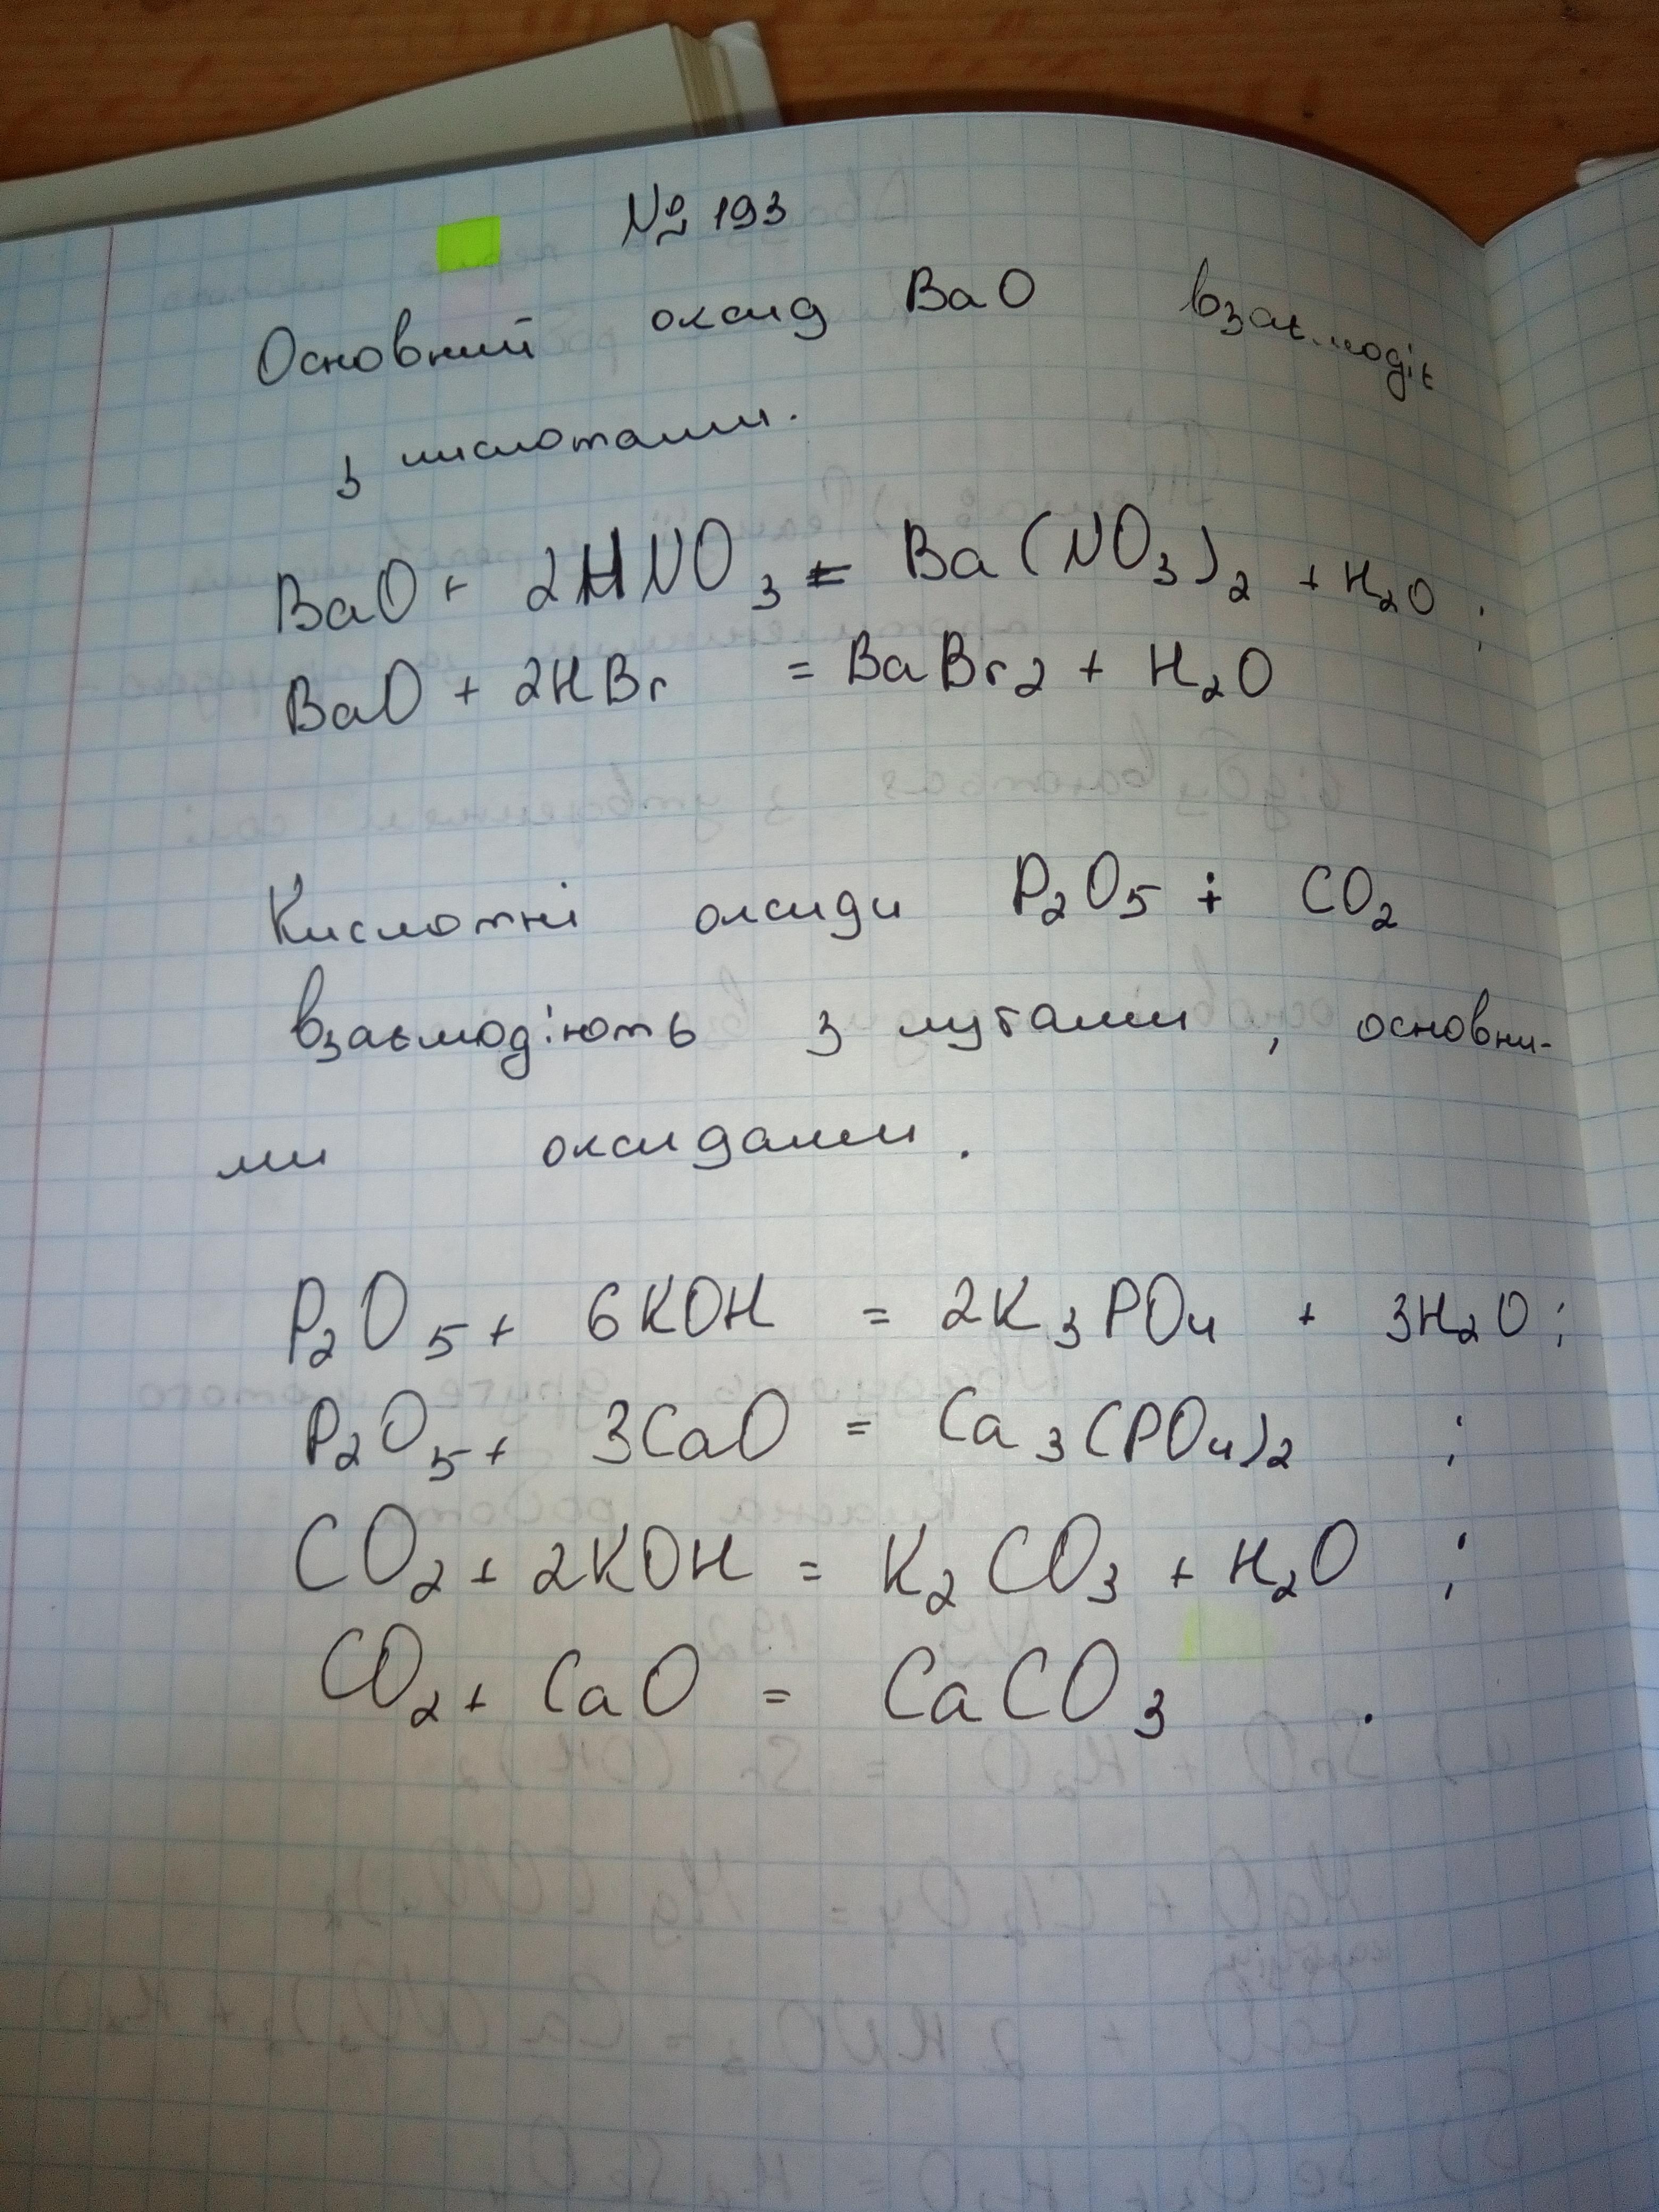 № 193
Основний оксид BaO взаємодіє
з кислотами.
BaO + 2HNO₃ = Ba(NO₃)₂ + H₂O ;
BaO + 2HBr = BaBr₂ + H₂O
Кислотні оксиди P₂O₅ і CO₂
взаємодіють з лугами, основни-
ми оксидами.
P₂O₅ + 6KOH = 2K₃PO₄ + 3H₂O ;
P₂O₅ + 3CaO = Ca₃(PO₄)₂ ;
CO₂ + 2KOH = K₂CO₃ + H₂O ;
CO₂ + CaO = CaCO₃ .